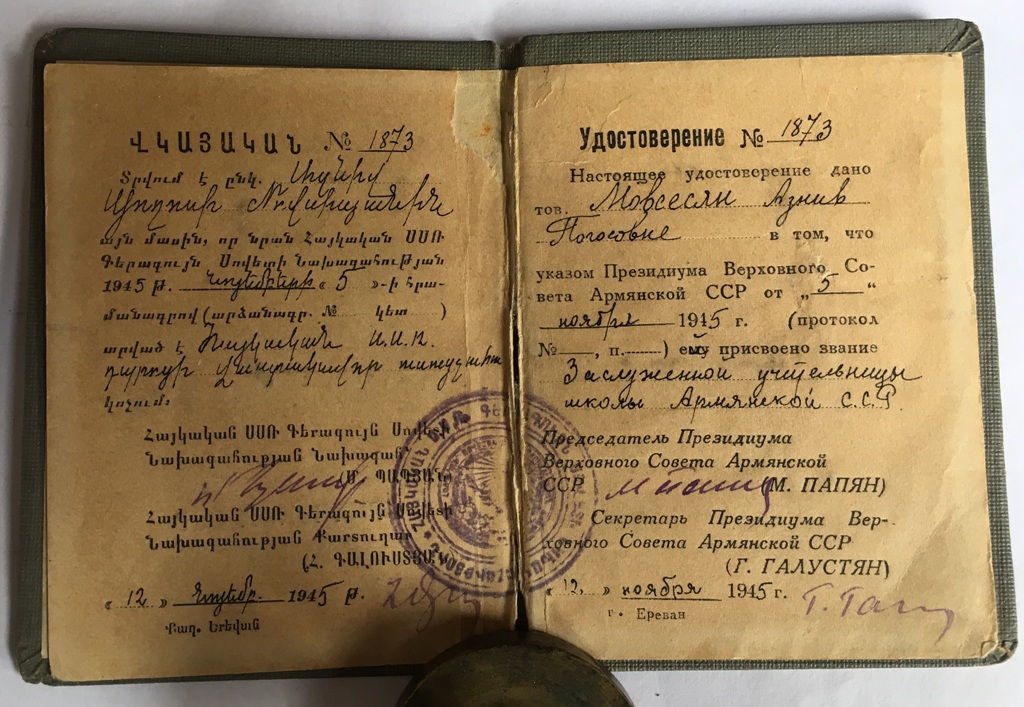 ՎԿԱՅԱԿԱՆ № 1873
Տրվում է ընկ. Ազնիվ
Պողոսի Մովսիսյանին
այն մասին, որ նրան Հայկական ՍՍՌ
Գերագույն Սովետի Նախագահության
1945 թ. նոյեմբերի « 5 »-ի հրա-
մանագրով (արձանագր. № կետ )
տրված է Հայկական Ս.Ս.Ռ.
դպրոցի վաստակավոր ուսուցչուհու
կոչում:
Հայկական ՍՍՌ Գերագույն Սովետի
Նախագահության Նախագահ
(Մ. ՊԱՊՅԱՆ)
Հայկական ՍՍՌ Գերագույն Սովետի
Նախագահության Քարտուղար
(Հ. ԳԱԼՈՒՍՏՅԱՆ)
« 12 » նոյեմբ. 1945 թ.
Քաղ. Երեվան
Удостоверение № 1873
Настоящее удостоверение дано
тов. Мовсесян Азнив
Погосовне в том, что
указом Президиума Верховного Со-
вета Армянской ССР от „ 5 “
ноября 1945 г. (протокол
№ , п. ) ей присвоено звание
Заслуженной учительницы
школы Армянской С.С.Р.
Председатель Президиума
Верховного Совета Армянской
ССР (М. ПАПЯН)
Секретарь Президиума Вер-
ховного Совета Армянской ССР
(Г. ГАЛУСТЯН)
« 12. » ноября 1945 г.
г. Ереван